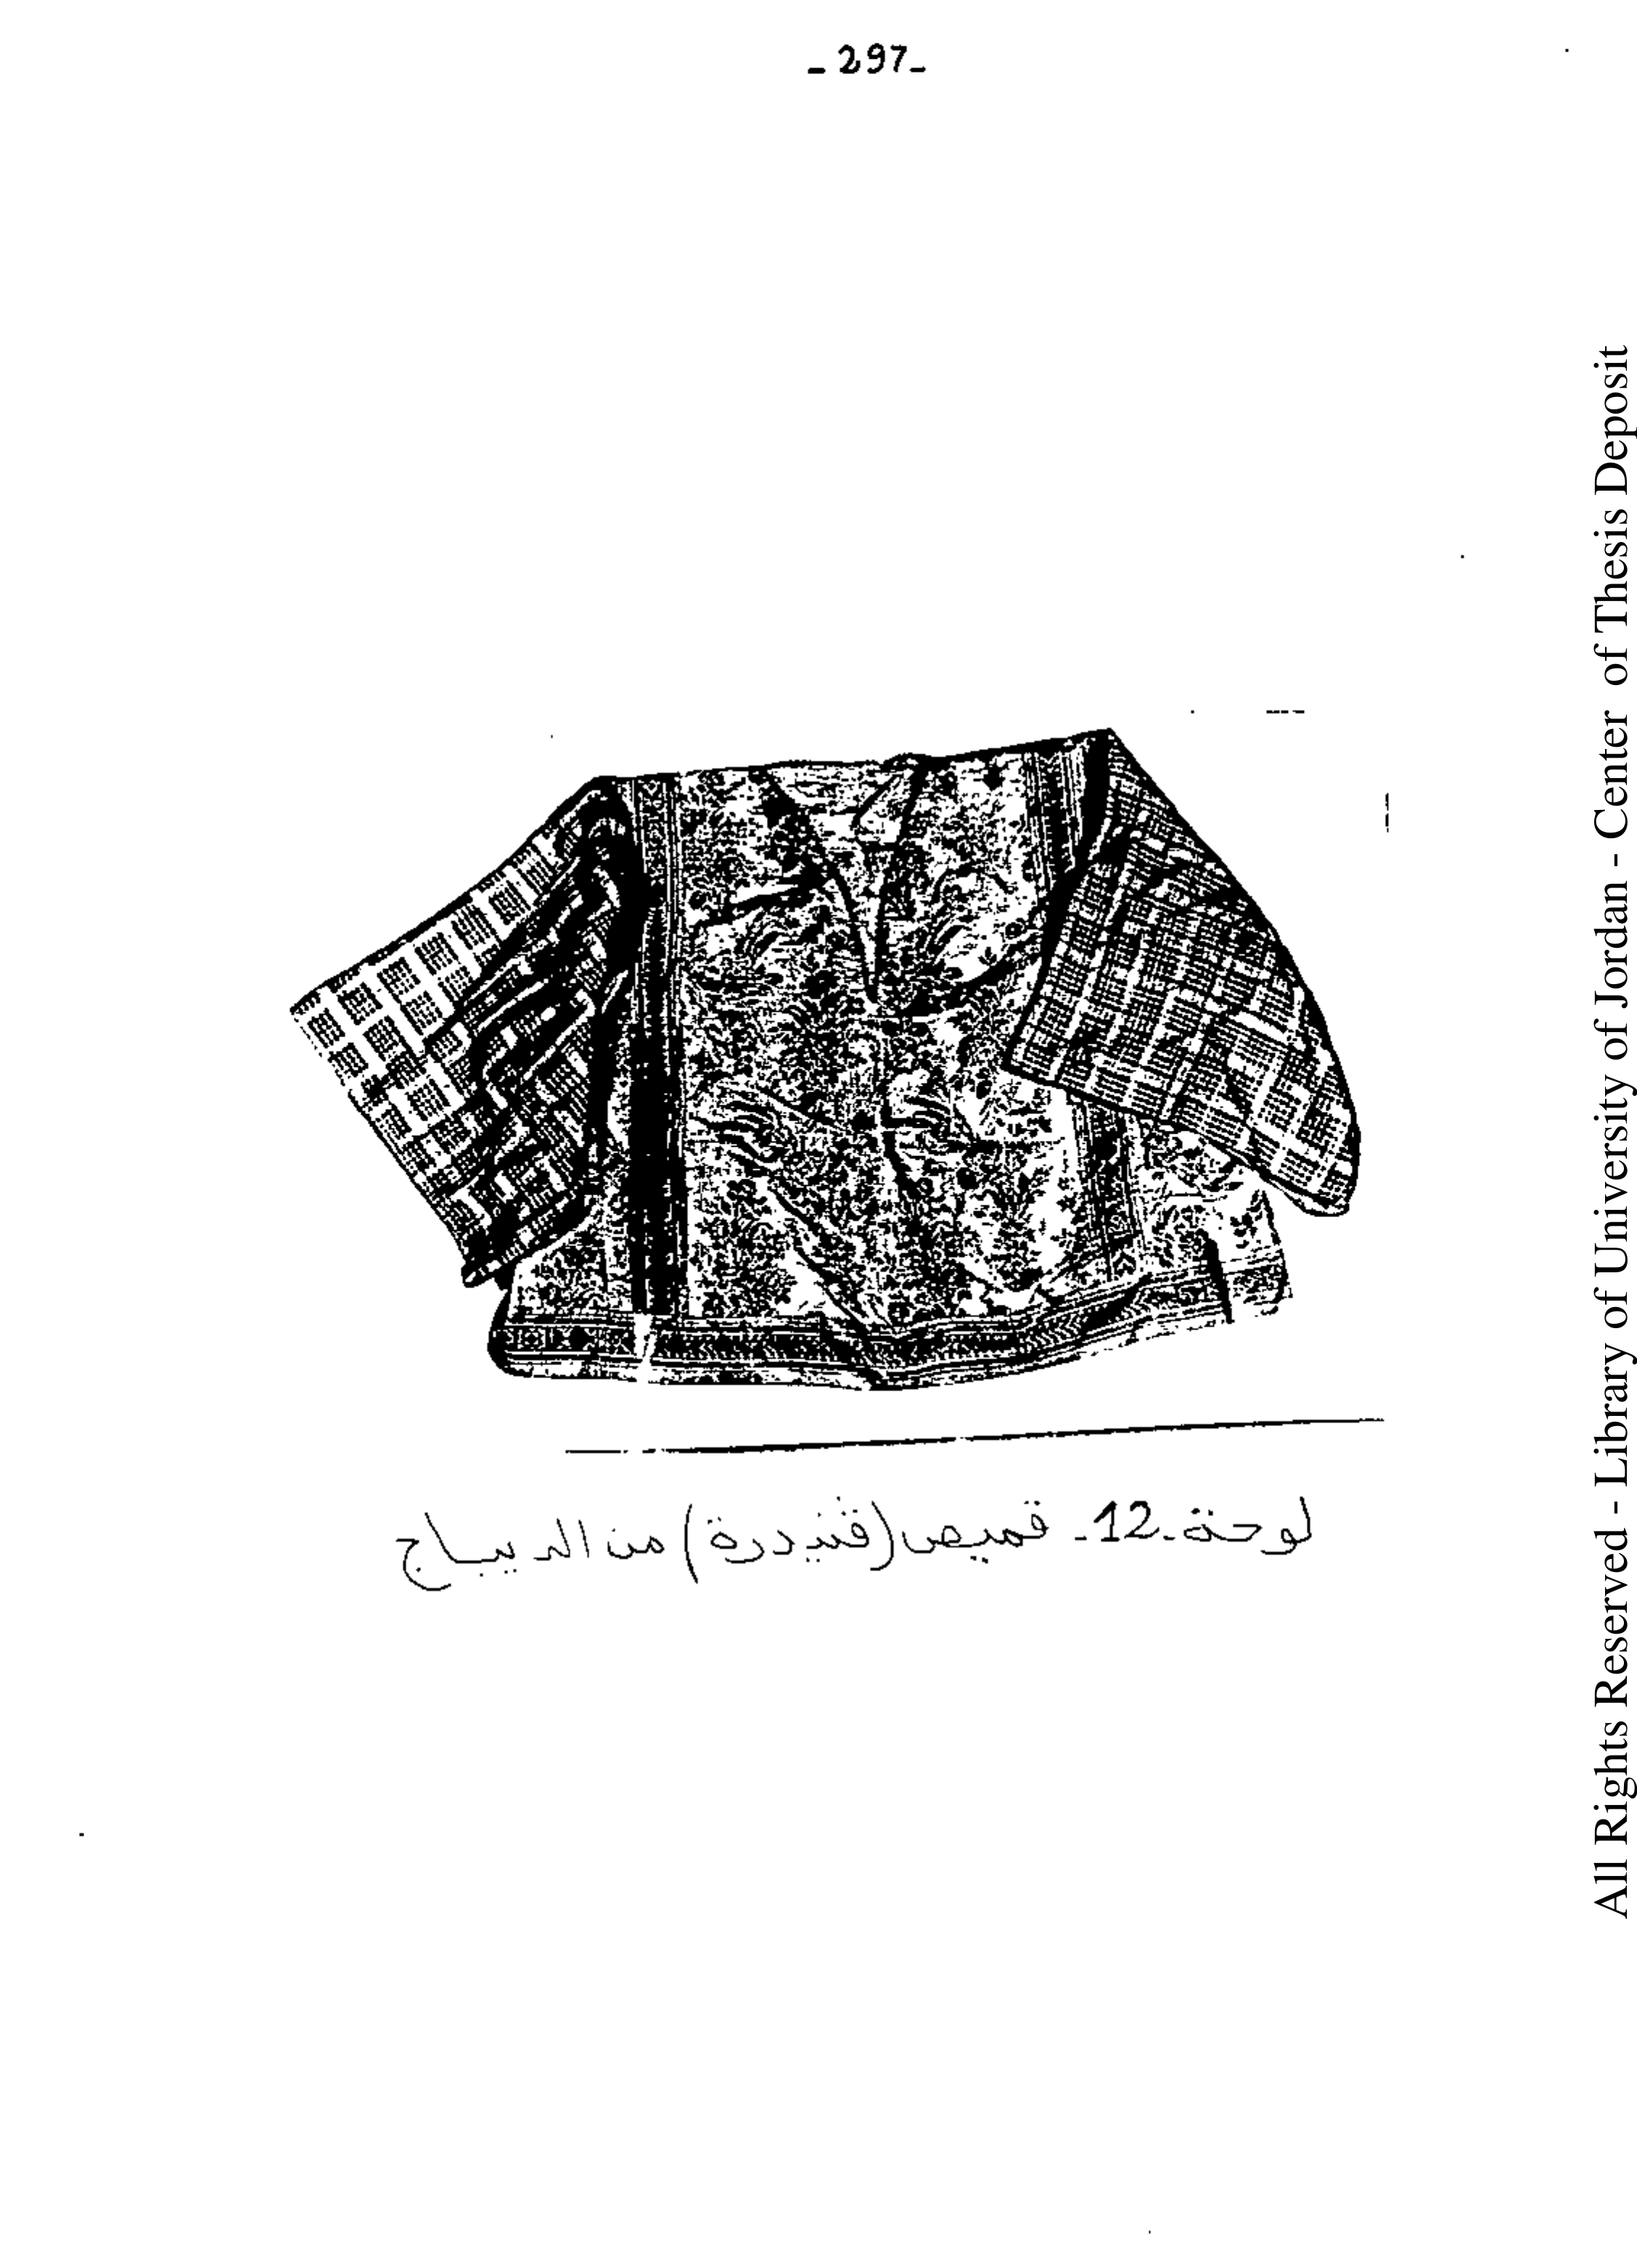 - 297-
لوحة -12- قميص (قنيدرة) من الديباج
All Rights Reserved - Library of University of Jordan - Center of Thesis Deposit